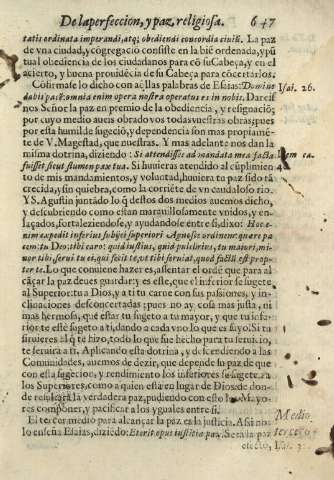 De la perfeccion, y paz religiosa. 647
tatis ordinata imperandi, atq; obediendi concordia ciuiũ. La paz
de vna ciudad, y cõgregació consiste en la biẽ ordenada, y pũ
tual obediencia de los ciudadanos para cõ su Cabeça, y en el
acierto, y buena prouidẽcia de su Cabeça para cõcertarlos.
Cõfirmase lo dicho con aq̃llas palabras de Esaias: Domine Isai. 26.
dabis pacẽ: omnia enim opera nostra operatus es in nobis. Dareis
nos Señor la paz en premio de la obediencia, y resignació;
por cuyo medio aueis obrado vos todas nuestras obras; pues
por esta humilde sugeció, y dependencia son mas propiamẽ-
te de V. Magestad, que nuestras. Y mas adelante nos dan la
misma dotrina, diziendo: Si attendisses ad mandata mea facta Idem ca.
fuisset sicut flumen pax tua. Si huuieras atendido al cũplimien 4
to de mis mandamientos, y voluntad, huuiera tu paz sido tã
crecida, y sin quiebra, como la corriẽte de vn caudaloso rio.
Y S. Agustin juntado lo q̃ destos dos medios auemos dicho,
y descubriendo como estan marauillosamente vnidos, y en-
laçados, fortaleziendose, y ayudandose entre si, dixo: Hoc e-
nim expedit inferius subijci superiori. Agnosce ordinem: quære pa
cem: tu Deo: tibi caro: quid iustius, quid pulchrius, tu maiori, mi-
nor tibi, serui tu ei, qui fecit te, vt tibi seruiat, quod factũ est prop-
ter te. Lo que conuiene hazer es, assentar el ordẽ que para al
cãçar la paz deues guardar: y es este, que el inferior se sugete
al Superior: tu a Dios, y a ti tu carne con sus passiones, y in-
clinaciones desconcertadas: pues no ay cosa mas justa, ni
mas hermosa, que estar tu sugeto a tu mayor, y que tu infe-
rior te esté sugeto a ti, dando a cada vno lo que es suyo. Si tu
siruieres al q̃ te hizo, todo lo que fue hecho para tu seruicio,
te seruirá a ti. Aplicando esta dotrina, y decendiendo a las
Comunidades, auemos de dezir, que depende su paz de que
con esta sugeció, y rendimento los inferiores se sugeten a
los Superiores, como a quien está en lugar de Dios: de don-
de resultará la verdadera paz, pudiendo con esto los Mayo-
res componer, y pacificar a los yguales entre si.
El tercer medio para alcançar la paz es la justicia. Assi nos Medio
lo enseña Esaias, diziẽdo: Et erit opus iustitiæ pax. Será la paz tercero
efecto,